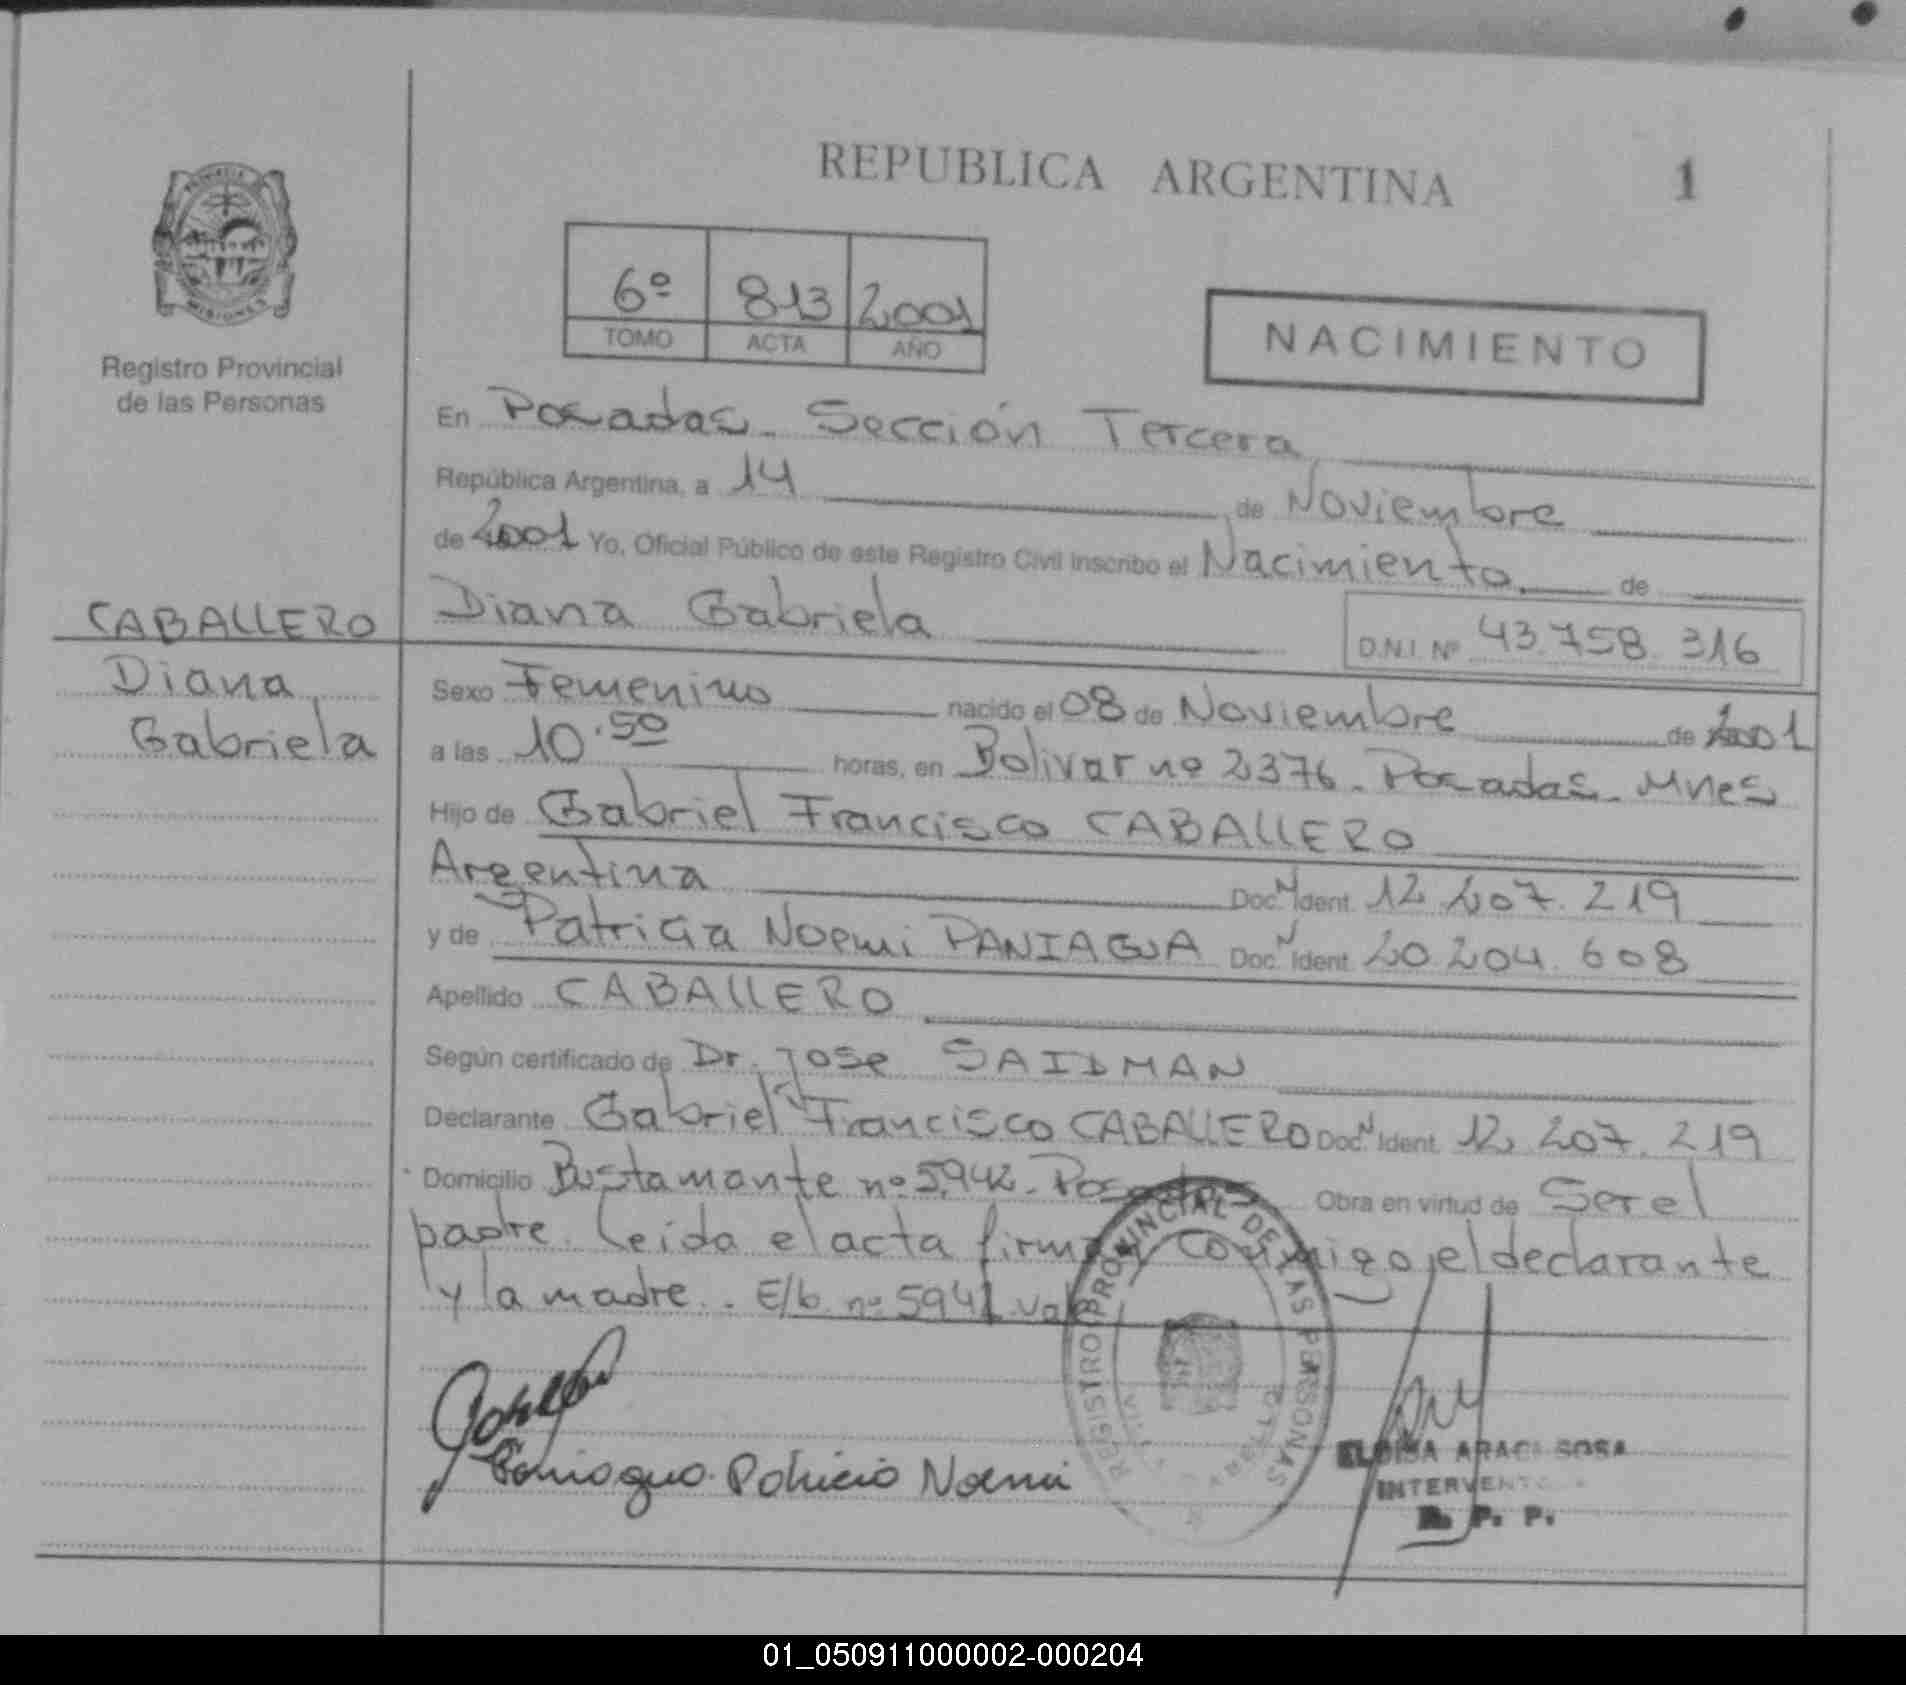 REPUBLICA ARGENTINA 1
PROVINCIA DE
MISIONES
Registro Provincial
de las Personas
6º 813 2001
TOMO ACTA AÑO
NACIMIENTO
En Posadas. Sección Tercera
República Argentina, a 14 de Noviembre
de 2001 Yo, Oficial Público de este Registro Civil inscribo el Nacimiento de
CABALLERO
Diana
Gabriela
Diana Gabriela D.N.I. Nº 43.758.316
Sexo Femenino nacido el 08 de Noviembre de 2001
a las 10.50 horas, en Bolivar nº 2376. Posadas. Mnes
Hijo de Gabriel Francisco CABALLERO
Argentina Doc. N Ident. 12.207.219
y de Patricia Noemi PANIAGUA Doc. N Ident. 20.204.608
Apellido CABALLERO
Según certificado de Dr. Jose SAIDMAN
Declarante Gabriel Francisco CABALLERO Doc. N Ident. 12.207.219
Domicilio Bustamante nº 5942. Posadas Obra en virtud de Ser el
padre. Leida el acta firman conmigo, el declarante
y la madre. E/b. nº 5942 vale
REGISTRO PROVINCIAL DE LAS PERSONAS
Paniagua Patricia Noemi
ELOISA ARACI SOSA
INTERVENTO
R. P. P.
01_050911000002-000204